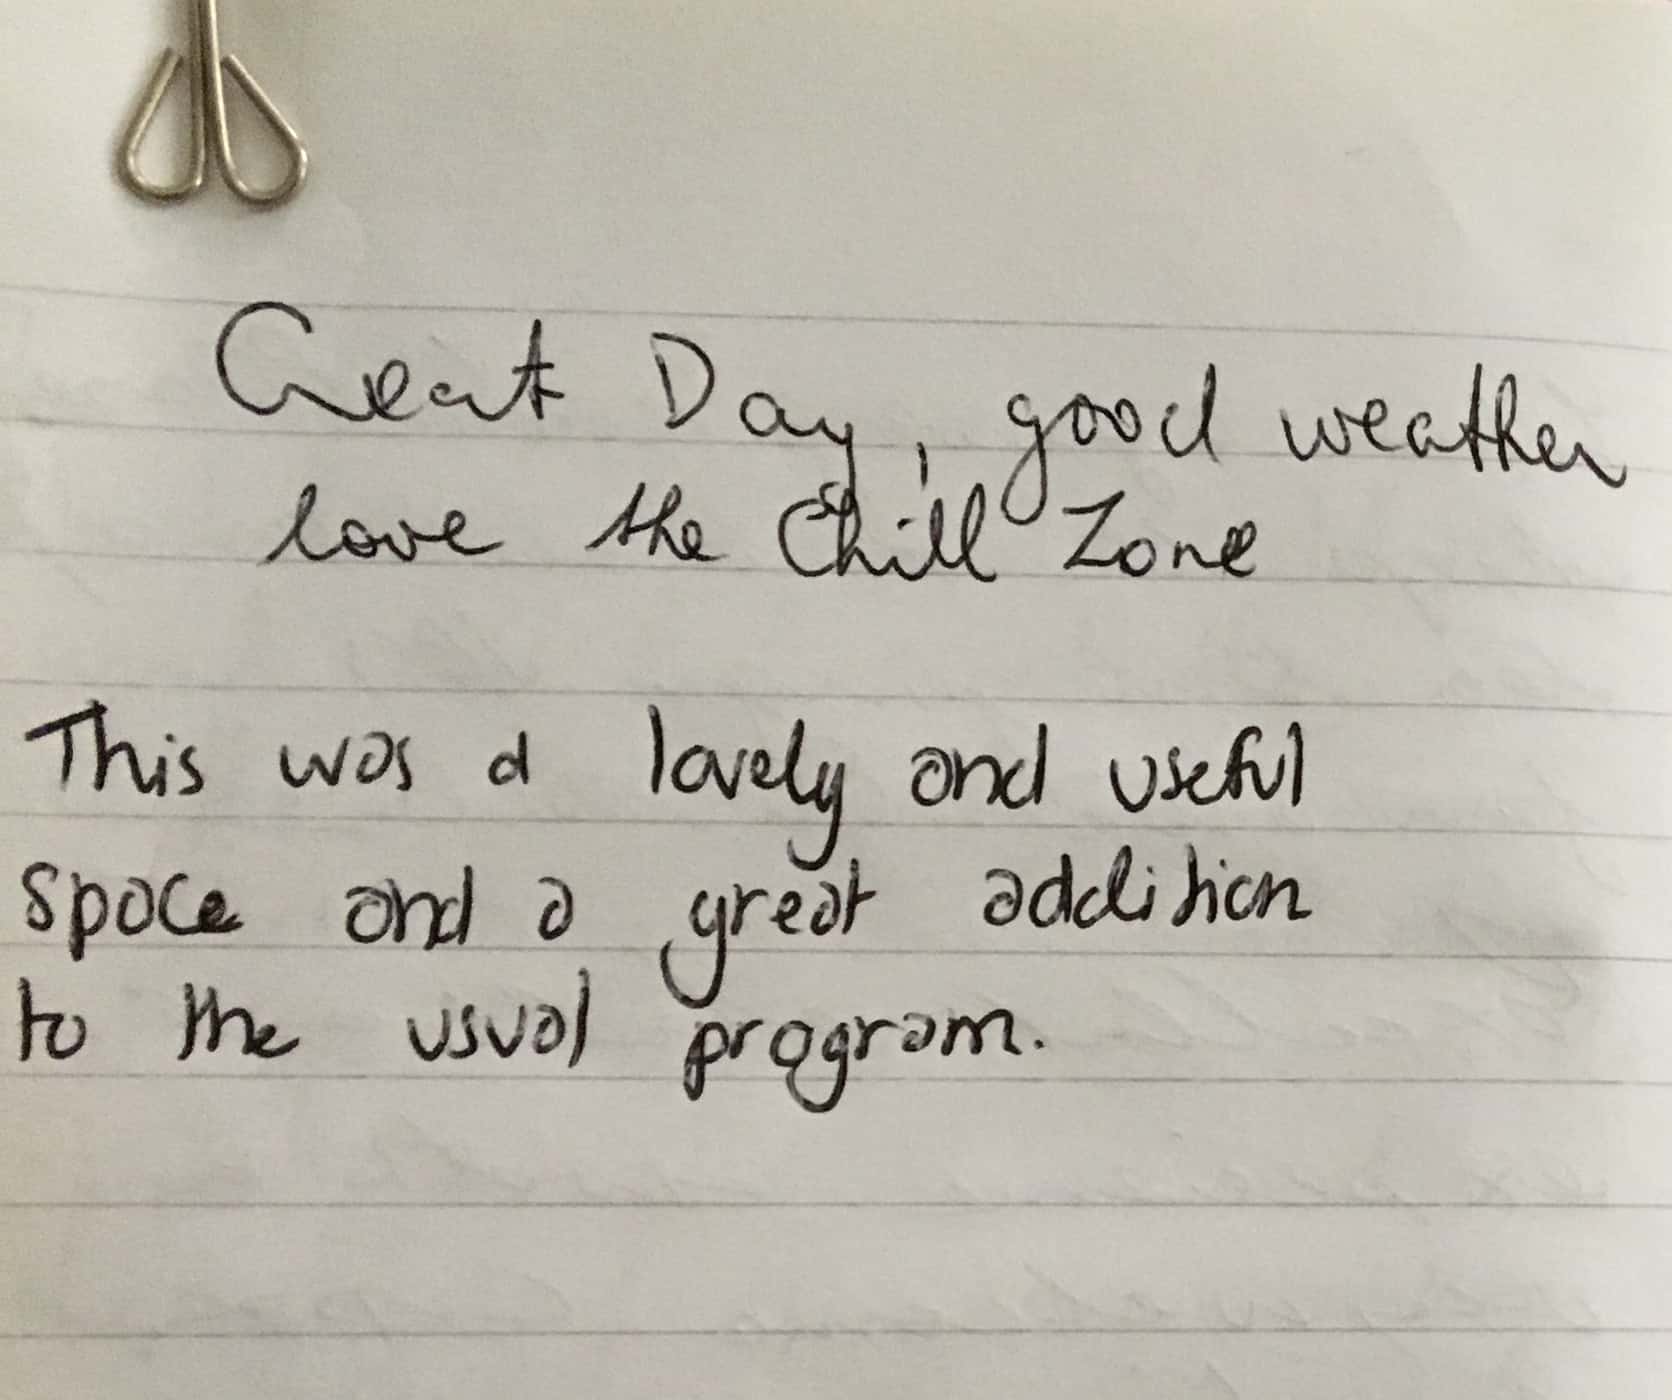 Great Day, good weather
love the Chill Zone
This was a lovely and useful
space and a great addition
to the usual program.